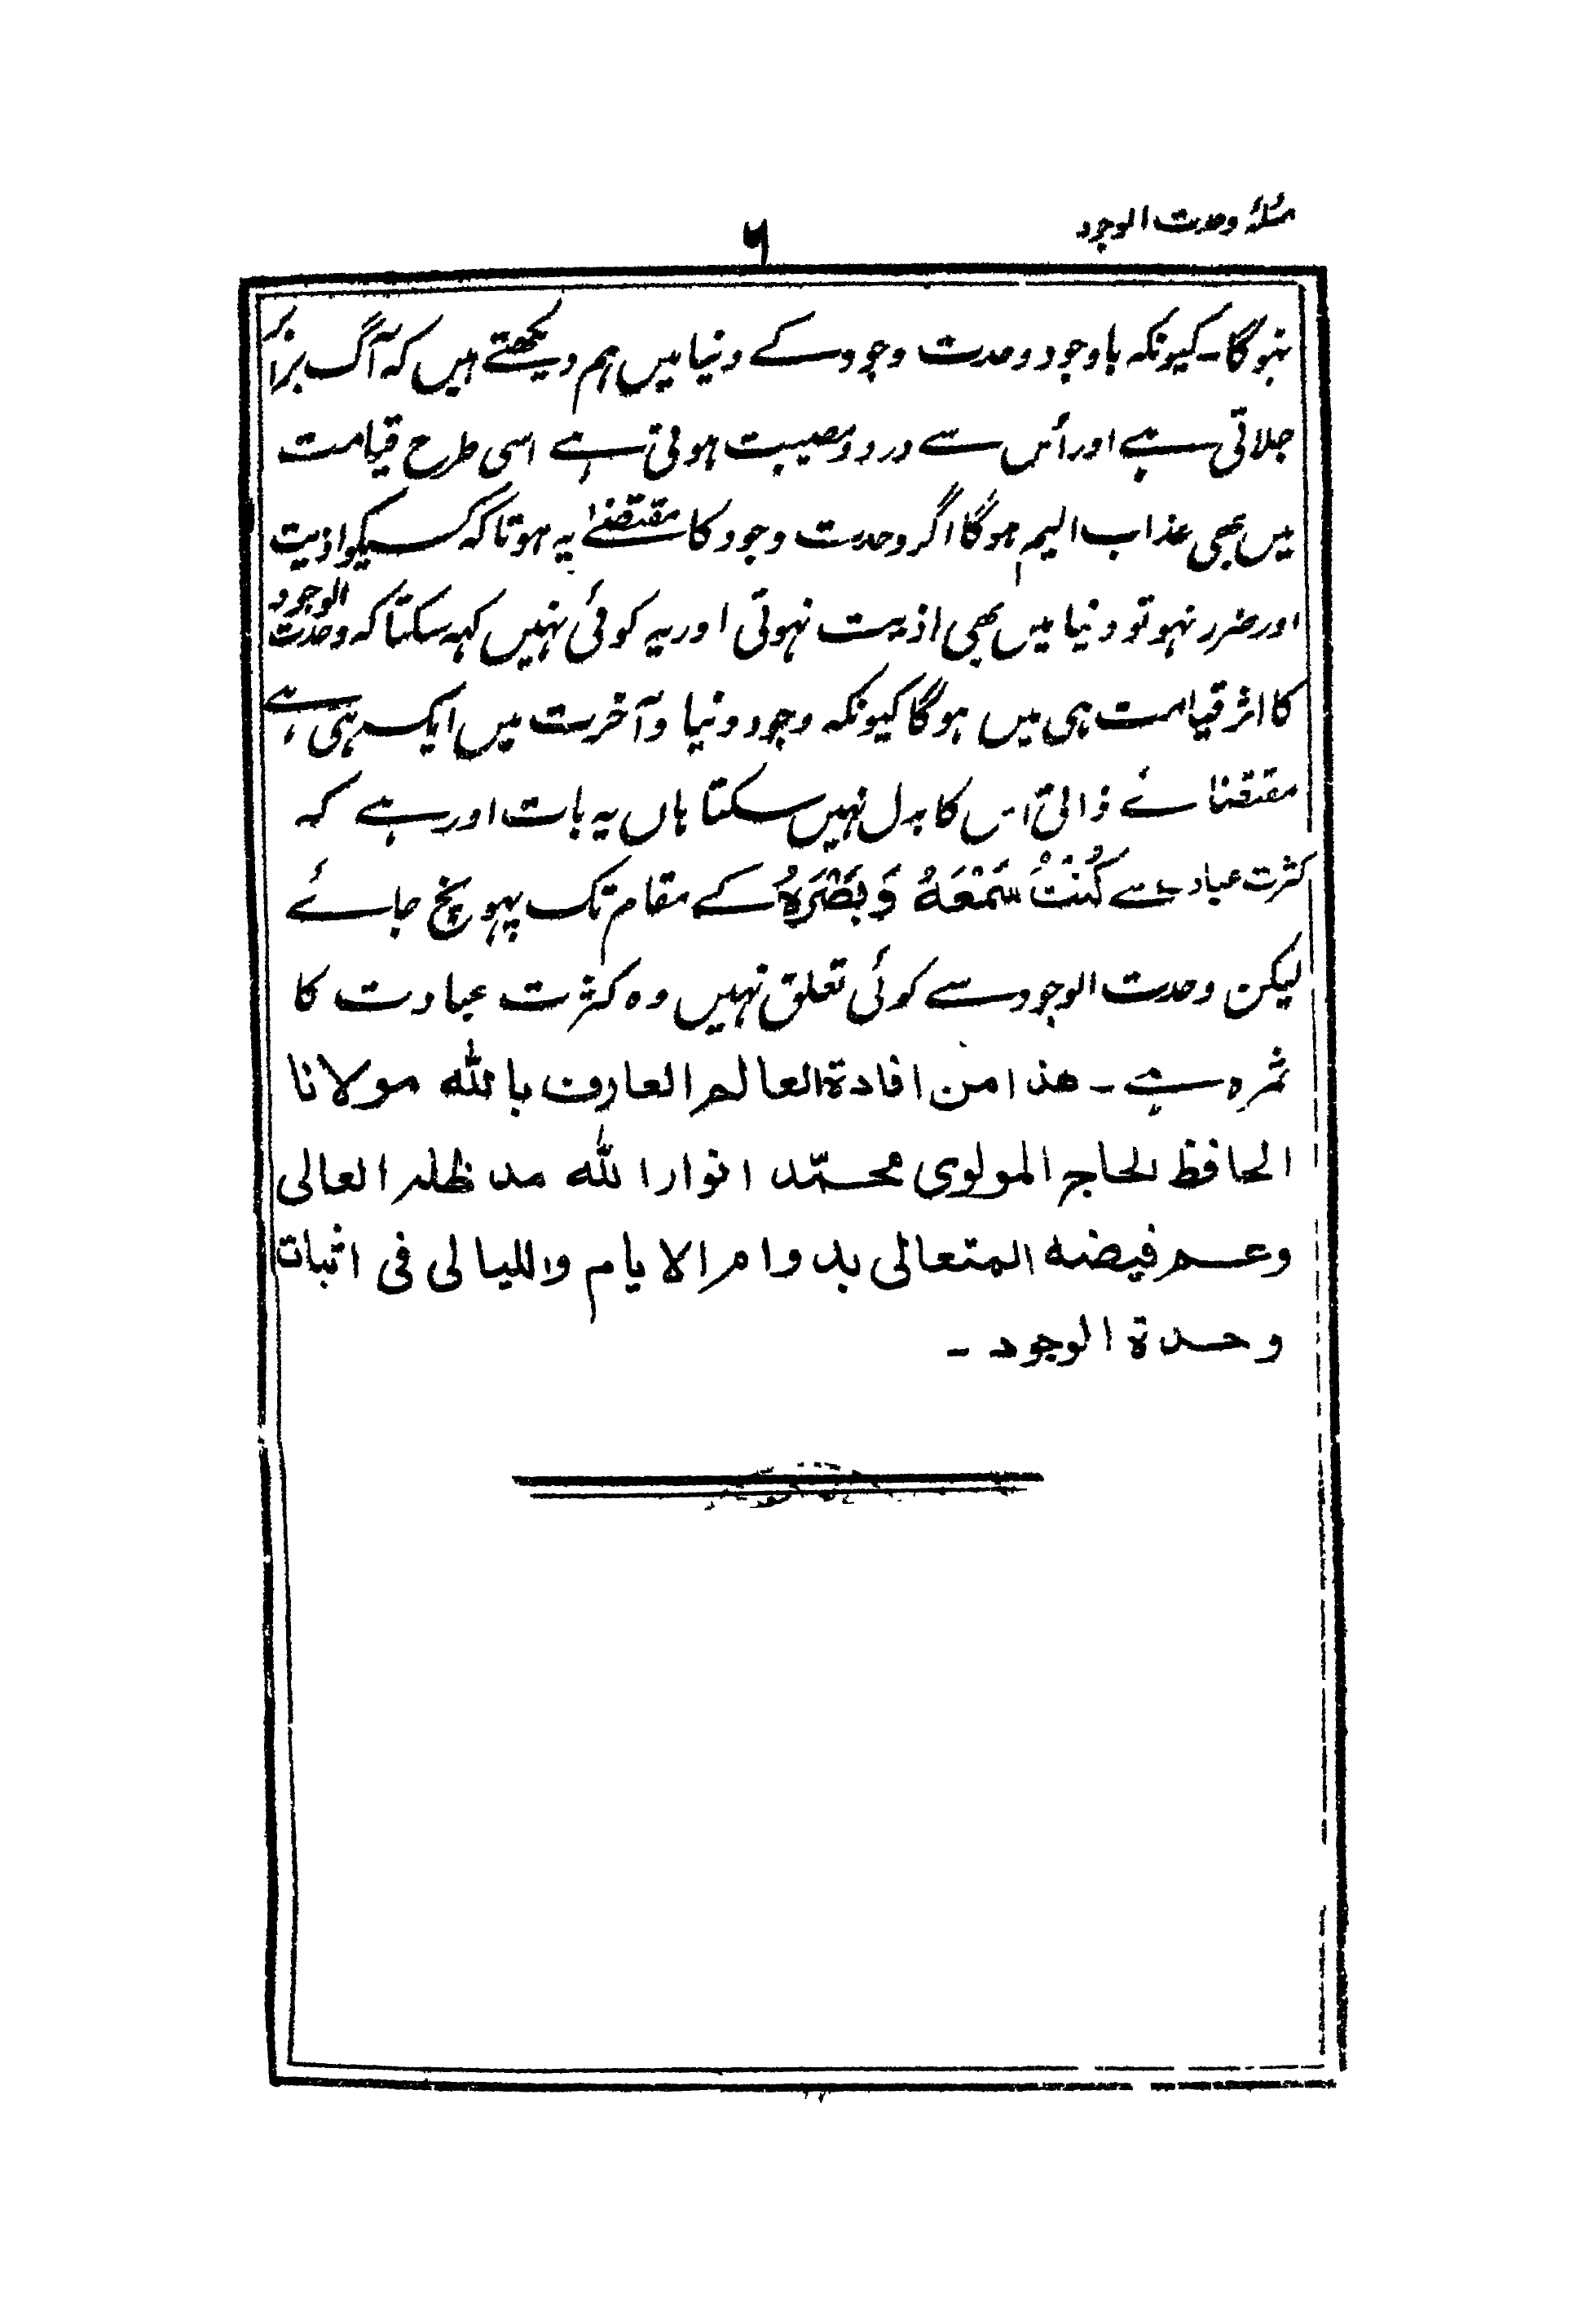 مسئلۂ وحدت الوجود
۶
نہوگا۔ کیونکہ باوجود وحدت وجود کے دنیا میں ہم دیکھتے ہیں کہ آگ برابر
جلاتی ہے اور اُس سے درد و مصیبت ہوتی ہے اسی طرح قیامت
میں بھی عذاب الیم ہوگا اگر وحدت وجود کا مقتضےٰ یہ ہوتا کہ کسیکو اذیت
اور ضرر نہو تو دنیا میں بھی اذیت نہوتی اور یہ کوئی نہیں کہہ سکتا کہ وحدت الوجود
کا اثر قیامت ہی میں ہوگا کیونکہ وجود دنیا و آخرت میں ایک ہی ہے
مقتضائے ذاتی اس کا بدل نہیں سکتا ہاں یہ بات اور ہے کہ
کثرت عبادت سے كُنْتُ سَمْعَهُ وَبَصَرَهُ کے مقام تک پہونچ جائے
لیکن وحدت الوجود سے کوئی تعلق نہیں وہ کثرت عبادت کا
ثمرہ ہے۔ هذا من افادة العالم العارف بالله مولانا
الحافظ الحاج المولوی محمّد انوار الله مد ظله العالی
وعم فيضه المتعالی بدوام الايام والليالی فی اثبات
وحدة الوجود ۔